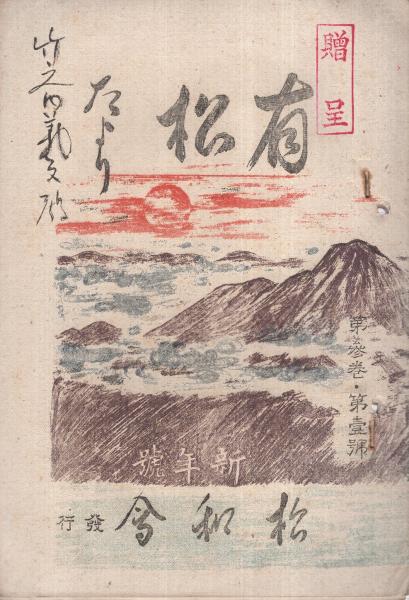 贈呈
有松
たより
竹之内義文殿
第參巻・第壹號
新年號
松和會
發行